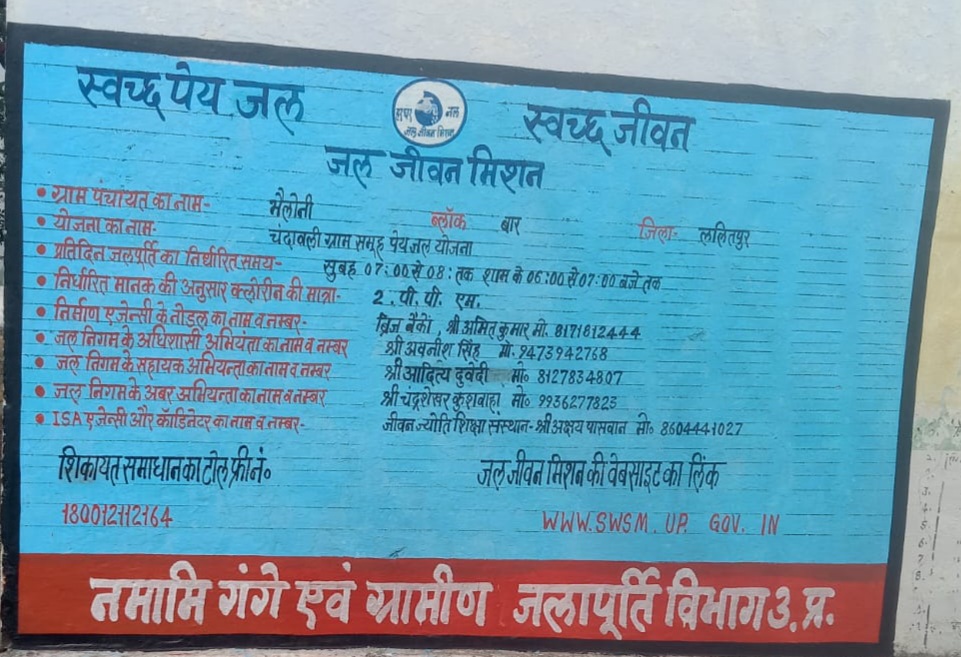 स्वच्छ पेय जल
हर घर जल
जल जीवन मिशन
स्वच्छ जीवन
जल जीवन मिशन
• ग्राम पंचायत का नाम- भैलोनी ब्लॉक बार जिला- ललितपुर
• योजना का नाम- चंदावली ग्राम समूह पेयजल योजना
• प्रतिदिन जलपूर्ति का निर्धारित समय- सुबह 07:00 से 08: तक शाम के 06:00 से 07:00 बजे तक
• निर्धारित मानक की अनुसार क्लोरीन की मात्रा- 2.पी.पी. एम.
• निर्माण एजेन्सी के नोडल का नाम व नम्बर- श्री अमित कुमार मो. 8171812444
• जल निगम के अधिशासी अभियंता का नाम व नम्बर श्री अवनीश सिंह मो. 9473942768
• जल निगम के सहायक अभियन्ता का नाम व नम्बर श्री आदित्य दुवेदी मो० 8127834807
• जल निगम के अबर अभियन्ता का नाम व नम्बर श्री चंद्रशेखर कुशवाहा मो० 9936277825
• ISA एजेन्सी और कॉडिनेटर का नाम व नम्बर- जीवन ज्योति शिक्षा संस्थान- श्री अक्षय पासवान मो० 8604441027
शिकायत समाधान का टोल फ्री नं०
जल जीवन मिशन की वेबसाइट का लिंक
180012112164
WWW.SWSM.UP. GOV. IN
नमामि गंगे एवं ग्रामीण जलापूर्ति विभाग उ.प्र.